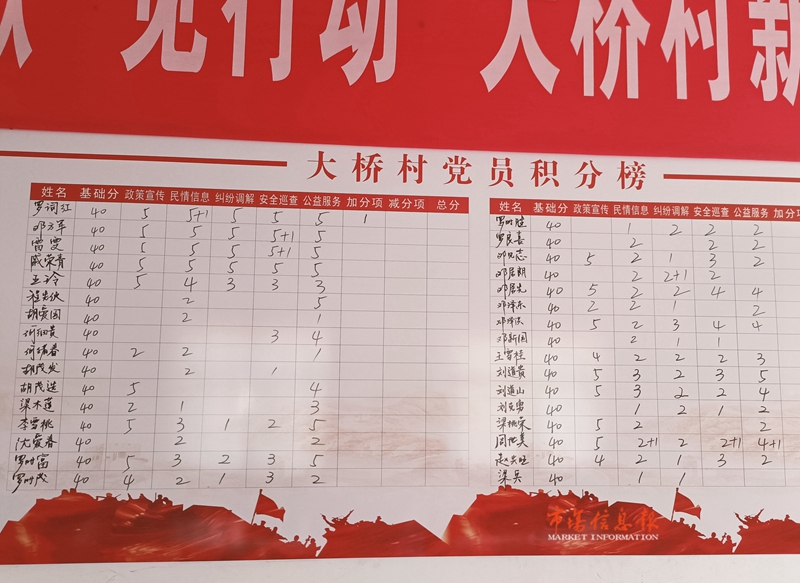 "见行动" 大桥村新
大桥村党员积分榜
姓名 基础分 政策宣传 民情信息 纠纷调解 安全巡查 公益服务 加分项 减分项 总分
罗词江 40 5 5+1 5 5 5 1
邓方军 40 5 5 5 5 5
雷雯 40 5 5 5 5+1 5
戚荣青 40 5 5 5 5 5
王玲 40 5 4 3 3 3
40 2 5
胡爱国 40 2 1
40 3 4
何绪春 40 2 2 1
胡茂发 40 2 1
胡茂进 40 5 4
梁木莲 40 2 1 3
李雪桃 40 5 3 1 2 5
沈爱春 40 2 2
罗时富 40 5 3 2 3 5
罗时茂 40 4 2 1 3 2
姓名 基础分 政策宣传 民情信息 纠纷调解 安全巡查 公益服务 加分
罗时 40 1 2 2 2
罗良喜 40 2 2 2
邓 志 40 5 2 1 3 2
邓居朗 40 2 2+1 2
邓居先 40 5 2 2 4 4
邓泽东 40 2 2 1 2
邓泽 40 5 2 3 4 4
邓新国 40 2 1 1
王雪桂 40 4 2 2 2 3
刘道贵 40 5 3 2 3 5
刘道山 40 5 3 2 2 4
刘 40 1 2 1 2
梁桃荣 40 5 2 2
周 美 40 5 2+1 2 2+1 4+1
赵 旺 40 4 2 1 3 2
梁吴 40 1 1
市场信息报
MARKET INFORMATION